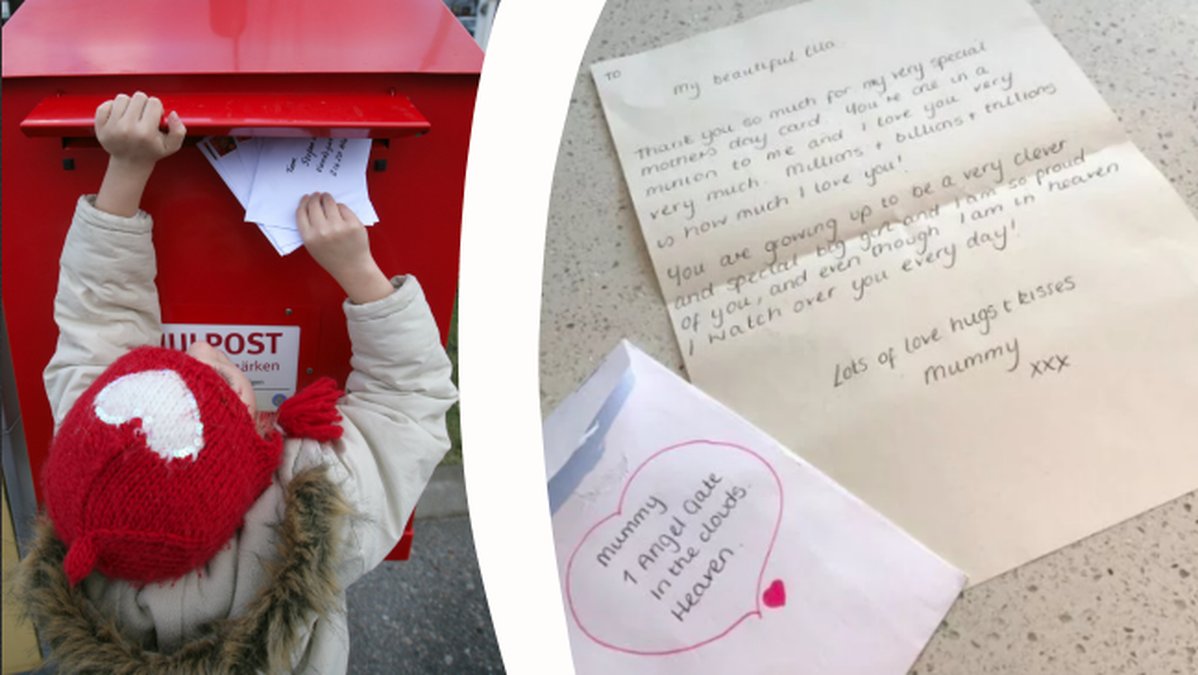 JULPOST
märken
TO
My beautiful Ella
Thank you so much for my very special
mothers day card. You're one in a
minion to me and I love you very
very much. Millions + billions + trillions
is how much I love you!
You are growing up to be a very clever
and special big girl and I am so proud
of you, and even though I am in heaven
I watch over you every day!
Lots of love hugs & kisses
mummy
xxx
mummy
1 Angel Gate
In the clouds.
Heaven.